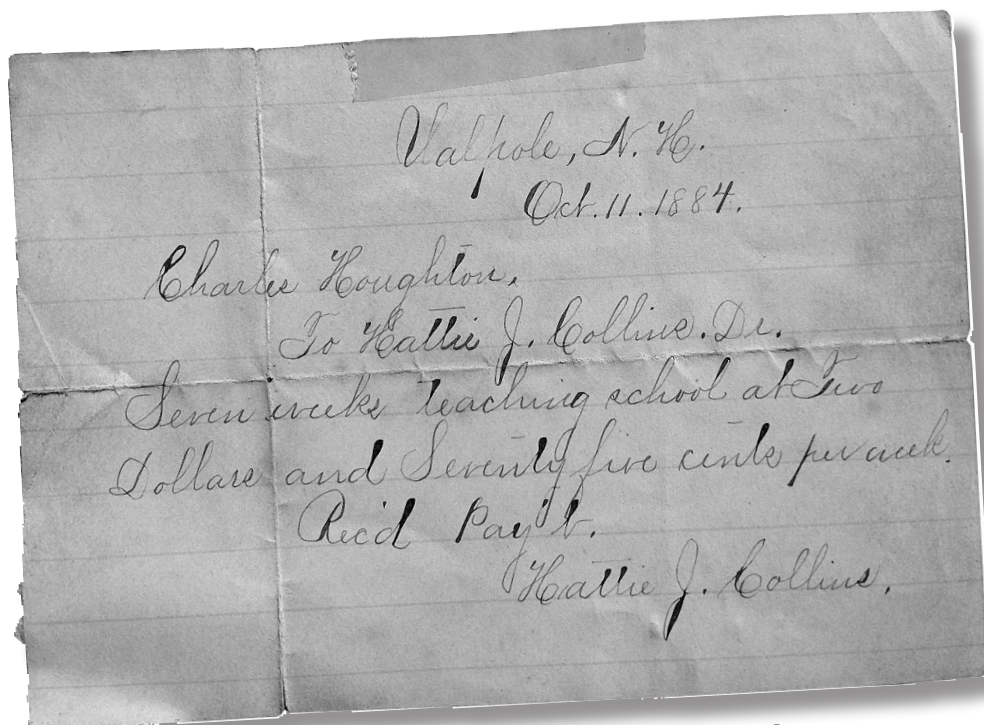 Walpole, N. H.
Oct. 11. 1884.
Charles Houghton,
To Hattie J. Collins. Dr.
Seven weeks teaching school at Two
Dollars and Seventy five cents per week.
Rec'd Pay't.
Hattie J. Collins.